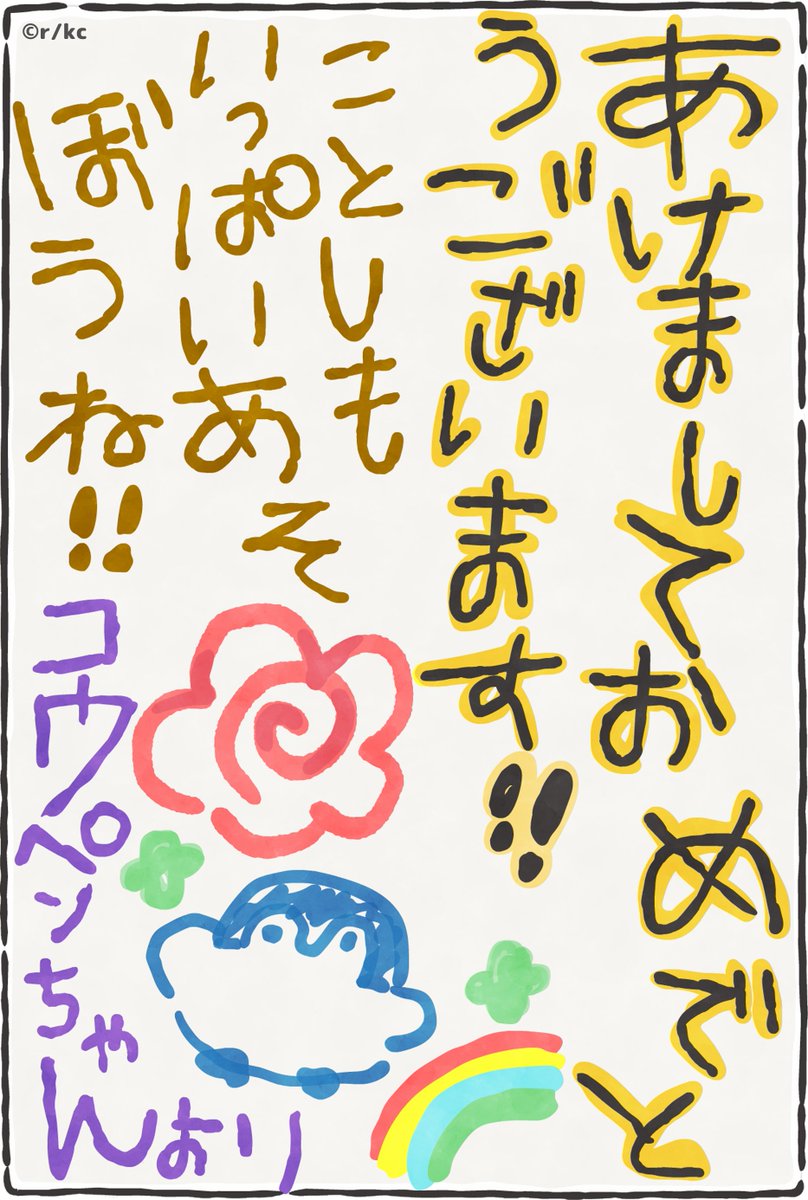 あけましておめえ゛と
うございます!!
ことしも
いっぱいあそ
ぼうね!!
コウペンちゃんおり
©r/kc